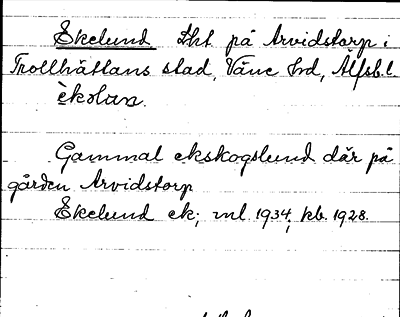 Ekelund Lht på Arvidstorp i
Trollhättans stad, Väne hd, Älfsb. l.
èkolan
Gammal ekskogslund där på
gården Arvidstorp
Ekelund ek; ml 1934; kb. 1928.